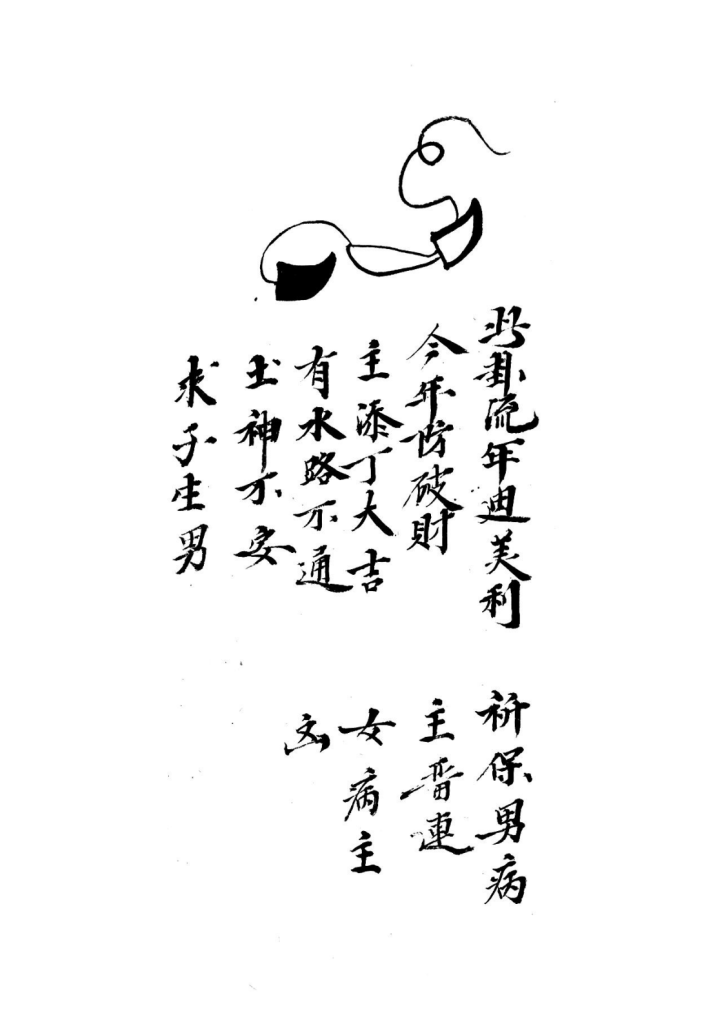 此卦流年迪美利
今年防破財
主添丁大吉
有水路不通
土神不安
求子生男
祈保男病
主畨連
女病主
凶